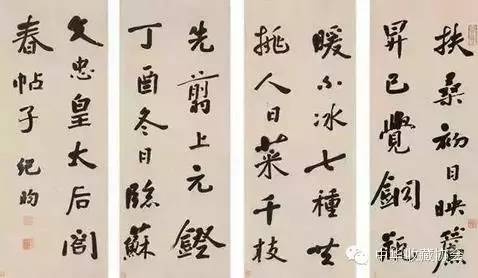 扶桑初日映簾
昇已覺銅瓶
暖不冰七種共
挑人日菜千枝
先翦上元鐙
丁酉冬日臨蘇
文忠皇太后閤
春帖子 紀昀
中华收藏协会